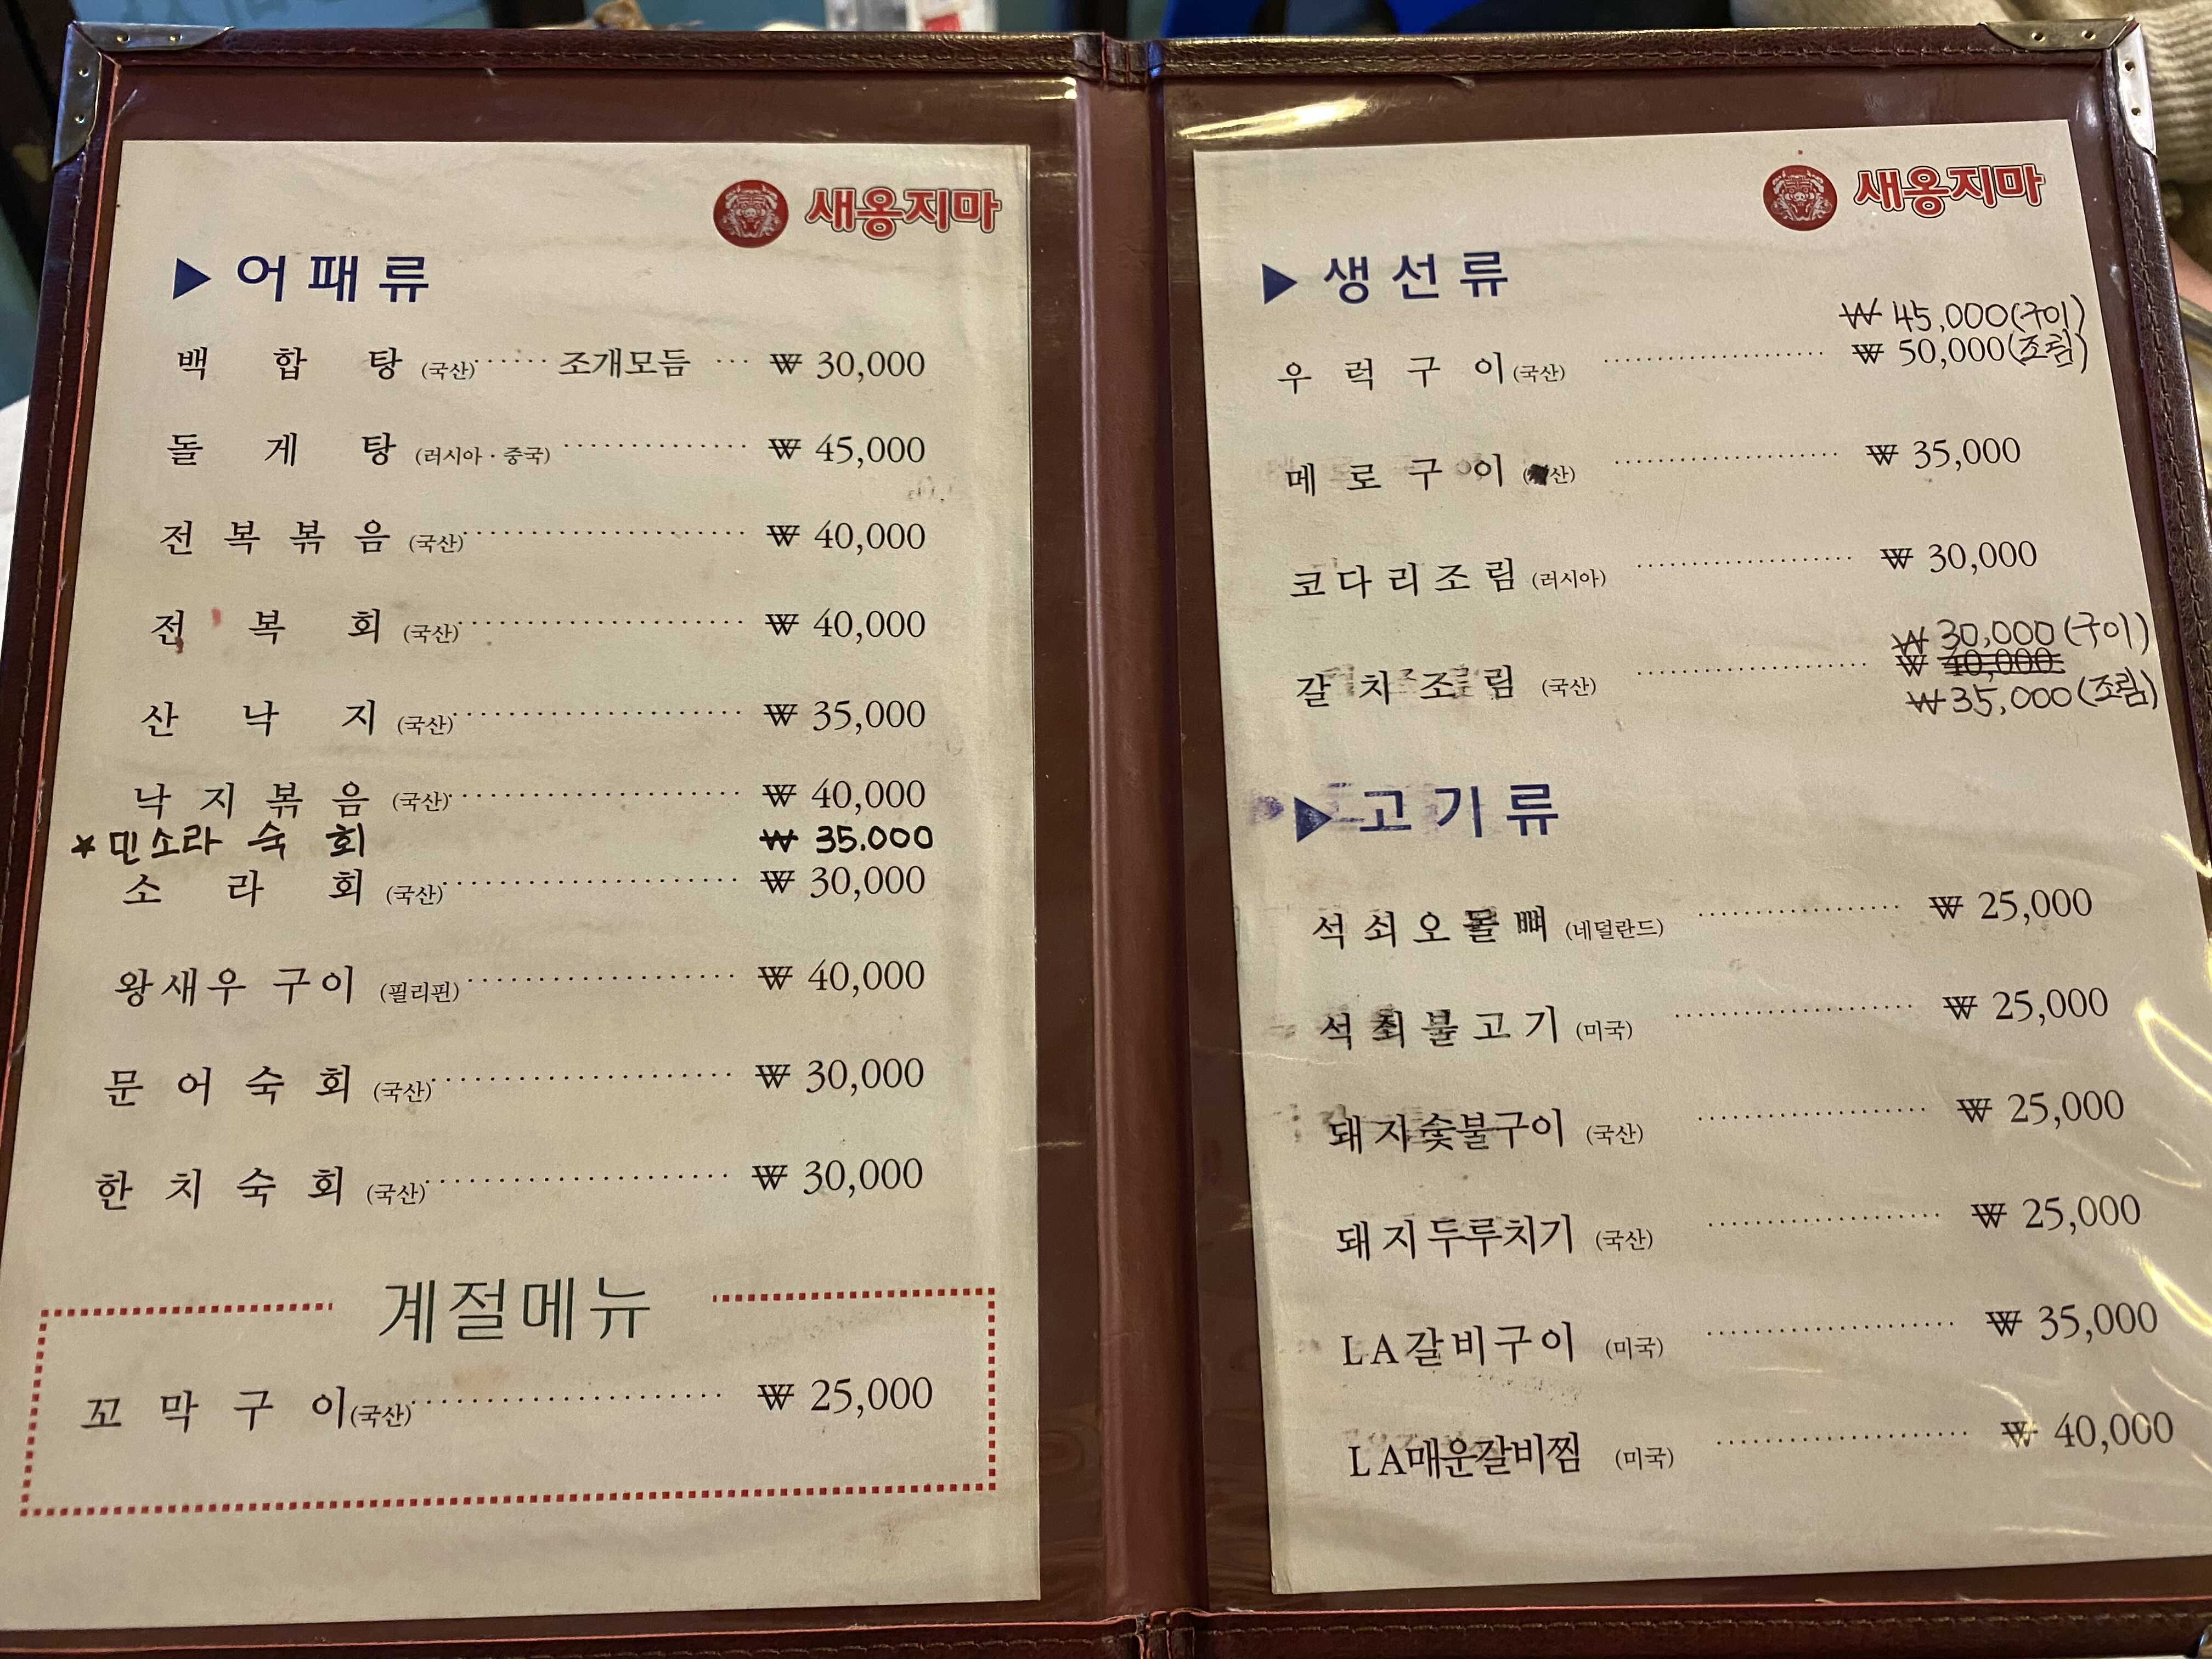 새옹지마
▶ 어패류
백 합 탕 (국산) ······ 조개모듬 ··· ₩ 30,000
돌 게 탕 (러시아 · 중국) ············ ₩ 45,000
전 복 볶 음 (국산) ············ ₩ 40,000
전 복 회 (국산) ············ ₩ 40,000
산 낙 지 (국산) ············ ₩ 35,000
낙 지 볶 음 (국산) ············ ₩ 40,000
★ 민소라 숙 회 ₩ 35.000
소 라 회 (국산) ············ ₩ 30,000
왕새우 구이 (필리핀) ············ ₩ 40,000
문 어 숙 회 (국산) ············ ₩ 30,000
한 치 숙 회 (국산) ············ ₩ 30,000
계절메뉴
꼬 막 구 이 (국산) ············ ₩ 25,000
새옹지마
▶ 생선류
₩ 45,000(구이)
우 럭 구 이 (국산) ············ ₩ 50,000(조림)
메 로 구 이 (산) ············ ₩ 35,000
코다리조림 (러시아) ············ ₩ 30,000
₩ 30,000(구이)
갈 치 조 림 (국산) ············ ₩ 40,000
₩ 35,000(조림)
▶ 고기류
석쇠오돌뼈 (네덜란드) ············ ₩ 25,000
석쇠불고기 (미국) ············ ₩ 25,000
돼지숯불구이 (국산) ············ ₩ 25,000
돼지두루치기 (국산) ············ ₩ 25,000
LA갈비구이 (미국) ············ ₩ 35,000
LA매운갈비찜 (미국) ············ ₩ 40,000